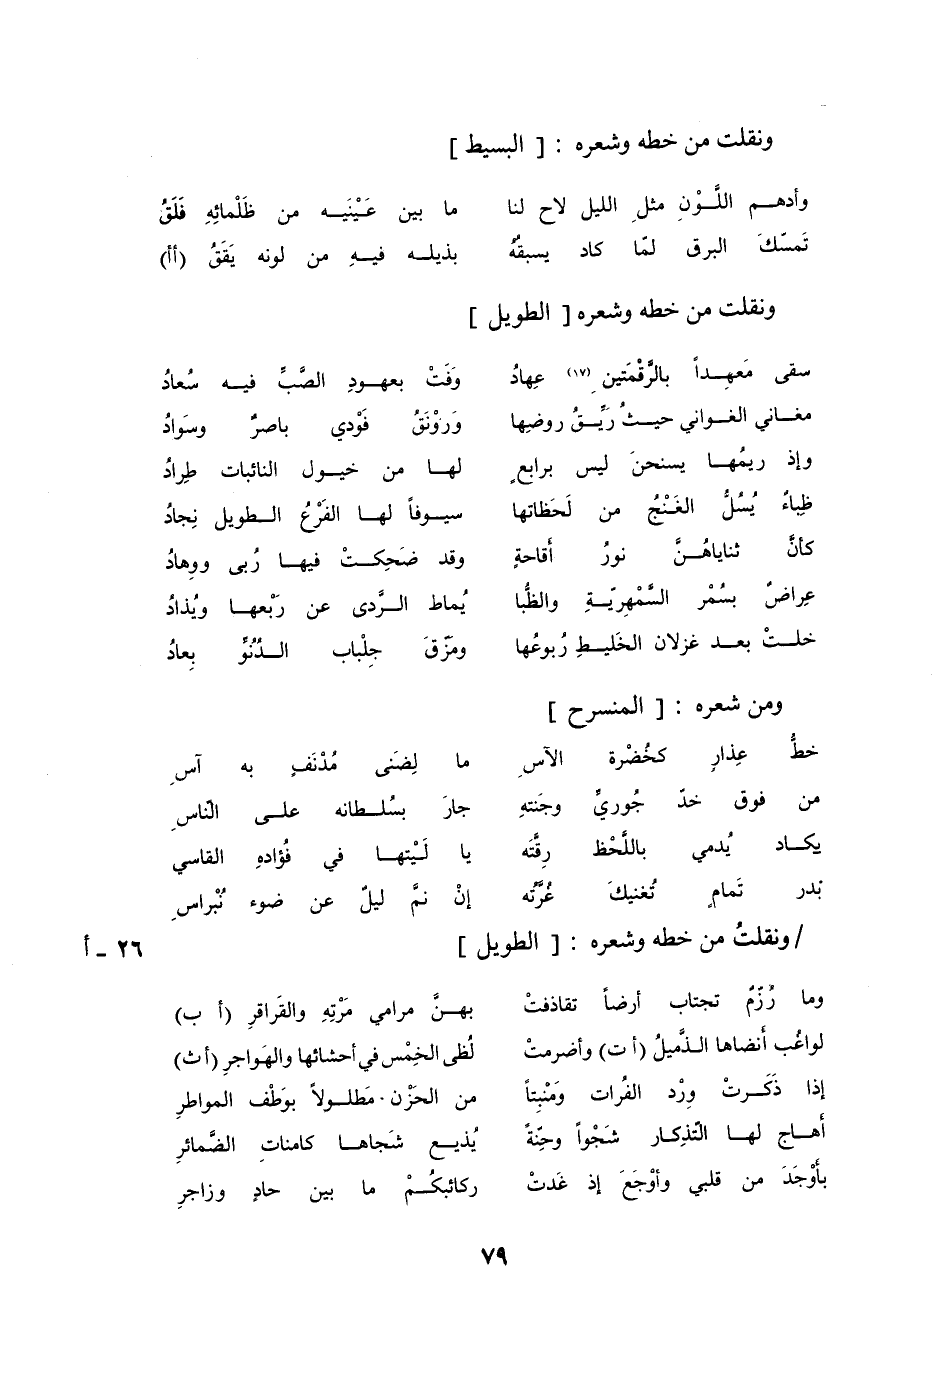 ونقلت من خطه وشعره : [ البسيط ]
وأدهـم اللَّـوْنِ مثل الليل لاح لنا ما بين عَيْنَيـه من ظَلْمائِهِ فَلَقُ
تَمسّكَ البرق لمّا كاد يسبقُهُ بذيلـه فيـهِ من لونه يَقَقُ (أأ)
ونقلت من خطه وشعره [ الطويل ]
سقى مَعهـداً بالرَّقْمَتَين (١٧) عِهادُ وَفَتْ بعهـودِ الصَّبِّ فيـه سُعادُ
مغـاني الغـواني حيـثُ رَيِّـقُ روضِها وَرَوْنَقُ فَوْدي باصرٌ وسَوادُ
وإذ ريمُهـا يسنحنَ ليس برابعٍ لهـا من خيـول النائبات طِرادُ
ظِباءٌ يُسُلُّ الغَنْجُ من لَحَظاتها سيـوفاً لهـا الفَرْعُ الـطويل نِجادُ
كأنَّ ثناياهُـنَّ نورُ أقاحةٍ وقد ضَحِكـتْ فيهـا رُبى ووهادُ
عِراصٌ بسُمْر السَّمْهريّـةِ والظُّبا يُماط الـرَّدى عن رَبْعهـا ويُذادُ
خلـتْ بعـد غزلان الخَليـطِ رُبوعُها ومَزّقَ جِلْباب الـدُّنُوِّ بعادُ
ومن شعره : [ المنسرح ]
خطُّ عِذارٍ كخُضْرة الآسِ ما لِضَنى مُدْنَفٍ به آسِ
من فوق خدّ جُوريِّ وجَنتهِ جارَ بسُلـطانه علـى النّاسِ
يكـاد يُدمي باللَّحْظ رِقَّته يا لَيْتهـا في فُؤادهِ القاسي
بَدر تَمامٍ تُغنيكَ غُرَّتُه إنْ نمَّ ليلٌ عن ضوء نُبْراسِ
/ ونقلتُ من خطه وشعره : [ الطويل ] ٢٦ - أ
وما رُزّمٌ تجتاب أرضاً تقاذفتْ بهـنَّ مرامي مَرْتِهِ والقَراقرِ (أ ب)
لواغُب أنضاها الـذَّميلُ (أ ت) وأضرمتْ لُظى الخِمْس في أحشائها والهَواجرِ (أ ث)
إذا ذَكَـرتْ وِرْد الفُرات ومَنْبِتاً من الحَزْن مَطلـولاً بوَطْف المواطرِ
أهـاج لهـا التّذكار شَجْواً وحِنّةً يُذيـع شَجاهـا كامناتِ الضّمائرِ
بأَوْجَدَ من قلبي وأوْجَعَ إذ غَدتْ ركائبكُـمْ ما بين حادٍ وزاجرِ
٧٩